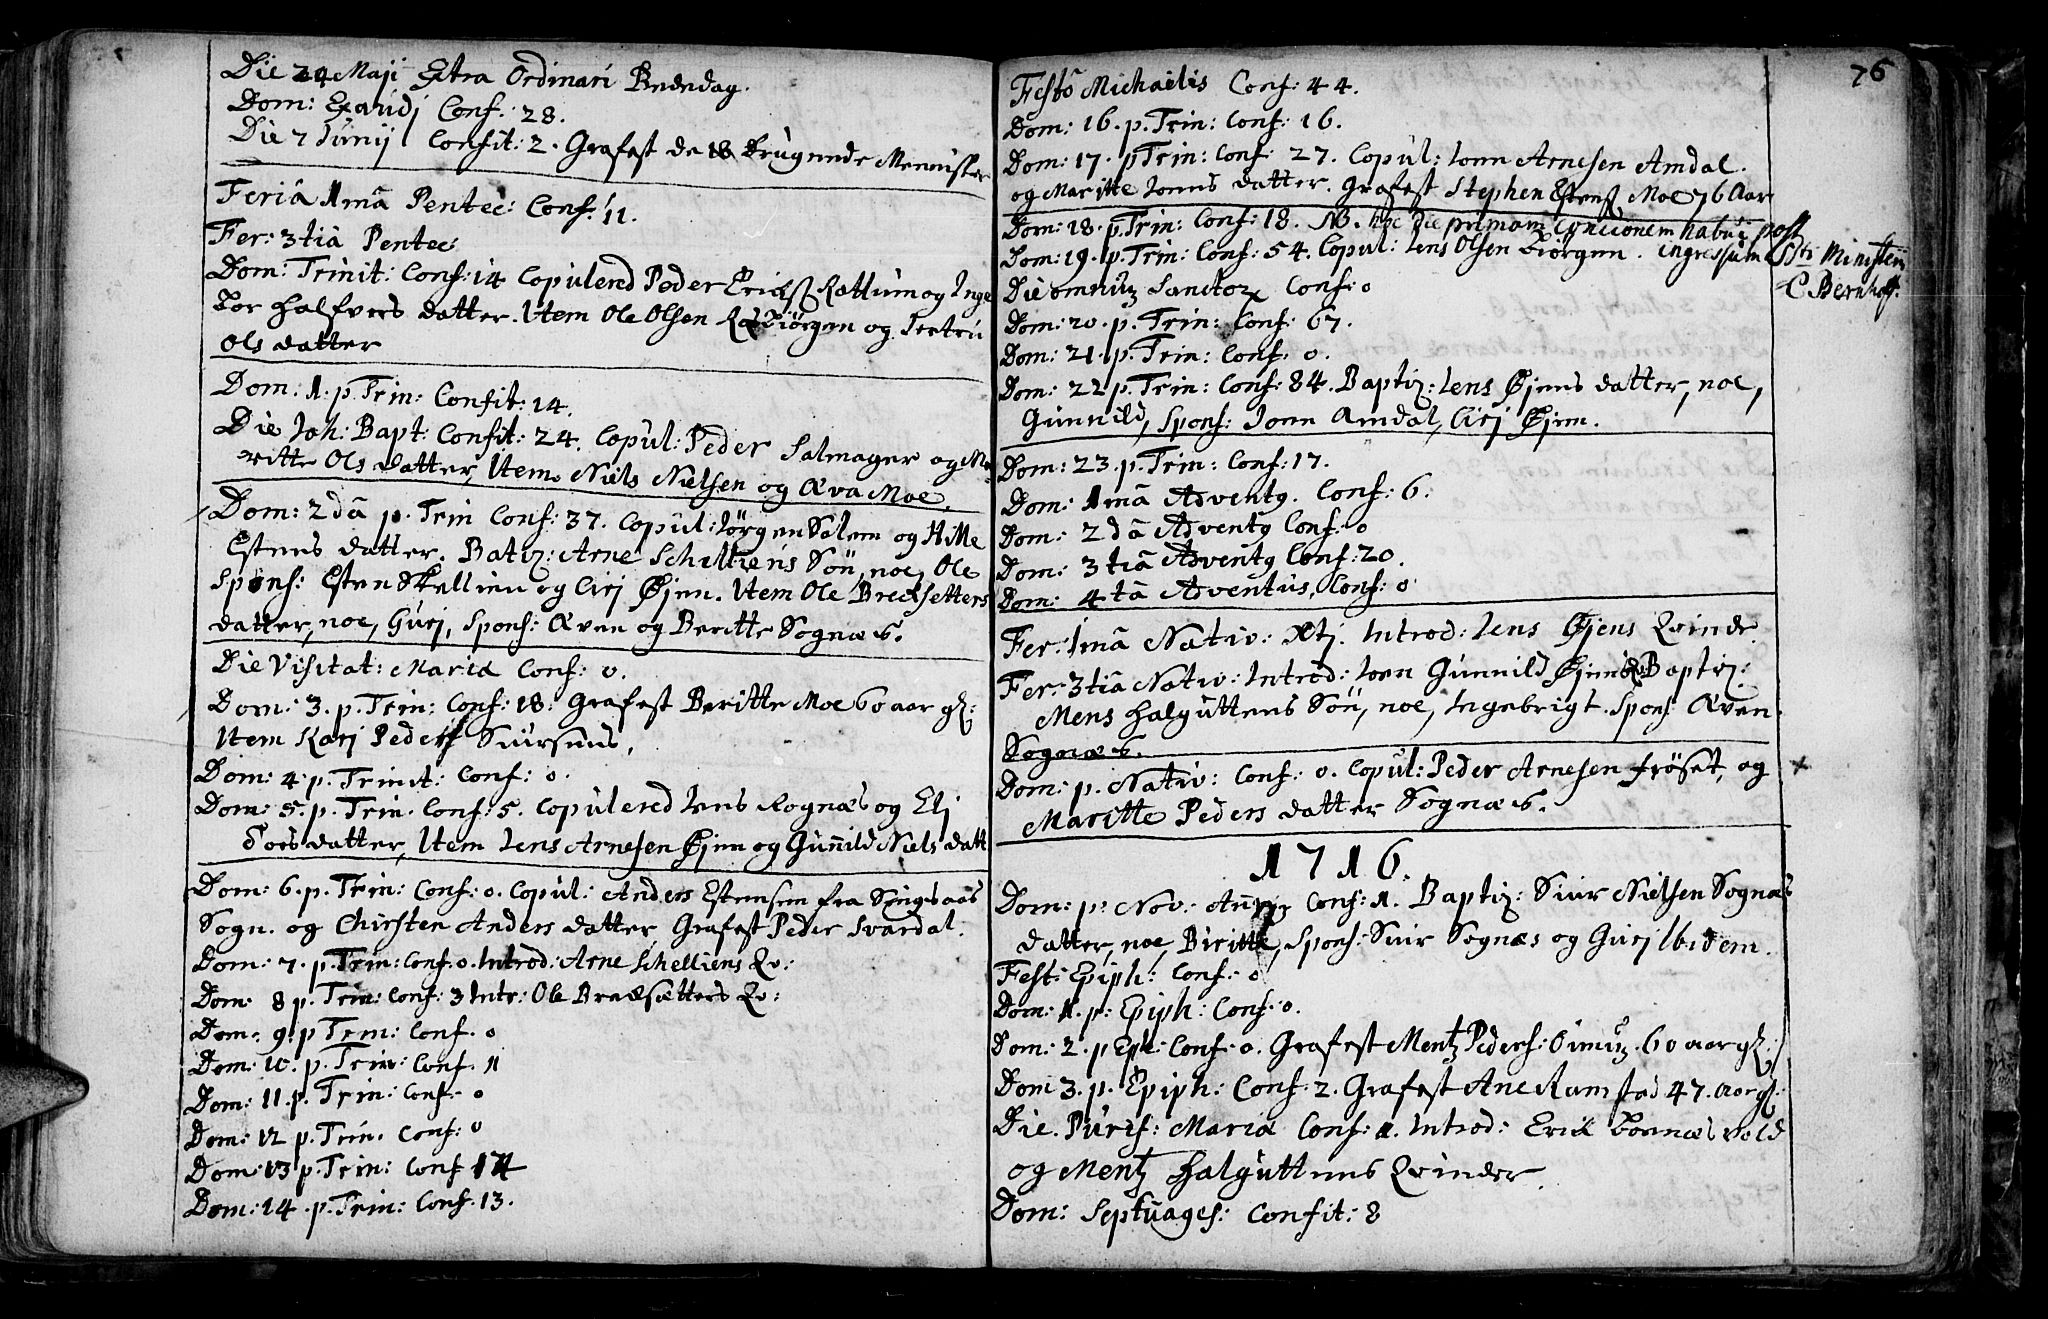 Die 24 Maji Extra Ordinari Bededag.
Dom: Exaudj Conf: 28.
Die 7 Junij Confit: 2. Grafest de 18 Mennisker
Feriâ 1mâ Pentec: Conf: 11.
Fer: 3tiâ Pentec:
Dom: Trinit: Conf: 14 Copulerd Peder Ericks: Rottum og Inge
bor Halfvors datter. Item Ole Olsen Biörgen og
Ols datter
Dom: 1. p. Trin: Confit: 14.
Die Joh: Bapt: Confit: 24. Copul: Peder Salmager og Ma
ritte Ols datter, Item Niels Nielsen og Æva Moe.
Dom: 2dâ p. Trin Conf: 37. Copul: Jörgen Solem og Hille
Estens datter. Batiz: Arne Schilliens Sön, noe, Ole
Spons: Esten Skellien og Cirj Øjen. Item Ole Brecksetters
datter, noe, Gurj, Spons: Æven og Beritte Sognæs.
Die Visitat: Mariæ Conf: 0.
Dom: 3. p. Trin: Conf: 18: Grafest Beritte Moe 60 aar gl:
Item Karj Peders
Dom: 4. p. Trinit: Conf: 0.
Dom: 5. p. Trin. Conf: 5. Copulerd Jens Rognæs og Elj
Tors datter, Item Jens Arnesen Øjen og Gunnild Niels datt
Dom: 6. p. Trin: Conf: 0. Copul: Anders Estensen fra Singsaas
Sogn. og Chirsten Anders datter Grafest Peder Svardal.
Dom: 7. p. Trin: Conf: 0. Introd: Arne Schelliens Qv:
Dom: 8 p. Trin: Conf: 3 Intr: Ole Bræcksætters Qv:
Dom: 9. p Trin: Conf: 0
Dom: 10. p. Trin: Conf: 11
Dom: 11. p. Trin: Conf: 0
Dom: 12 p. Trin. Conf: 0
Dom: 13 p. Trin: Conf 14
Dom: 14. p. Trin: Conf: 13.
76
Festô Michaëlis Conf: 44.
Dom: 16. p. Trin: Conf: 16.
Dom: 17. p Trin: Conf: 27. Copul: Jonn Arnesen Amdal.
og Maritte Jonns datter. Grafest Stephen Estens: Moe 76 Aar
Dom: 18. p. Trin: Conf: 18. NB. hoc Die primam concionem habui post
Dom: 19. p. Trin: Conf: 54. Copul: Jens Olsen Biörgen. ingressum Sti Ministerii
C Bernhoft.
Die omnium Sanctor Conf: 0
Dom: 20. p. Trin: Conf: 67.
Dom: 21. p. Trin: Conf: 0.
Dom: 22 p. Trin: Conf: 84. Baptiz: Jens Øjens datter, noe,
Gunnild, Spons: Jonn Amdal, Cirj Øjen.
Dom: 23. p. Trin: Conf: 17.
Dom: 1mâ Adventus. Conf: 6.
Dom: 2dâ Adventus Conf: 0
Dom: 3tiâ Adventus Conf: 20.
Dom: 4tâ Adventus, Conf: 0
Fer: 1mâ Nativ: Xtj. Introd: Jens Øjens Qvinde.
Fer: 3tiâ Nativ: Introd: Gunnild Øjens Baptiz:
Mens Halguttens Sön, noe, Ingebrigt. Spons: Æven
Sognæs.
Dom: p. Nativ: Conf: 0. Copul: Peder Arnesen Fröset, og
Maritte Peders datter Sognæs.
1716.
Dom: p: Nov: Conf: 1. Baptiz: Siur Nielsen Sognæs
datter, noe, Biritte, Spons: Siur Sognæs og Gurj Ibidem.
Fest: Epiph: Conf: 0
Dom: 1. p: Epiph: Conf: 0.
Dom: 2. p Eph: Conf: 0. Grafest Mentz Peders: 60 aar gl:
Dom 3. p. Epiph: Conf: 2. Grafest Ane Ramstad 47. aar gl:
Die. Purif: Mariæ Conf: 1. Introd: Erik Bonnæsvold
og Mentz Halguttens Qvinder.
Dom: Septuages: Confit: 8